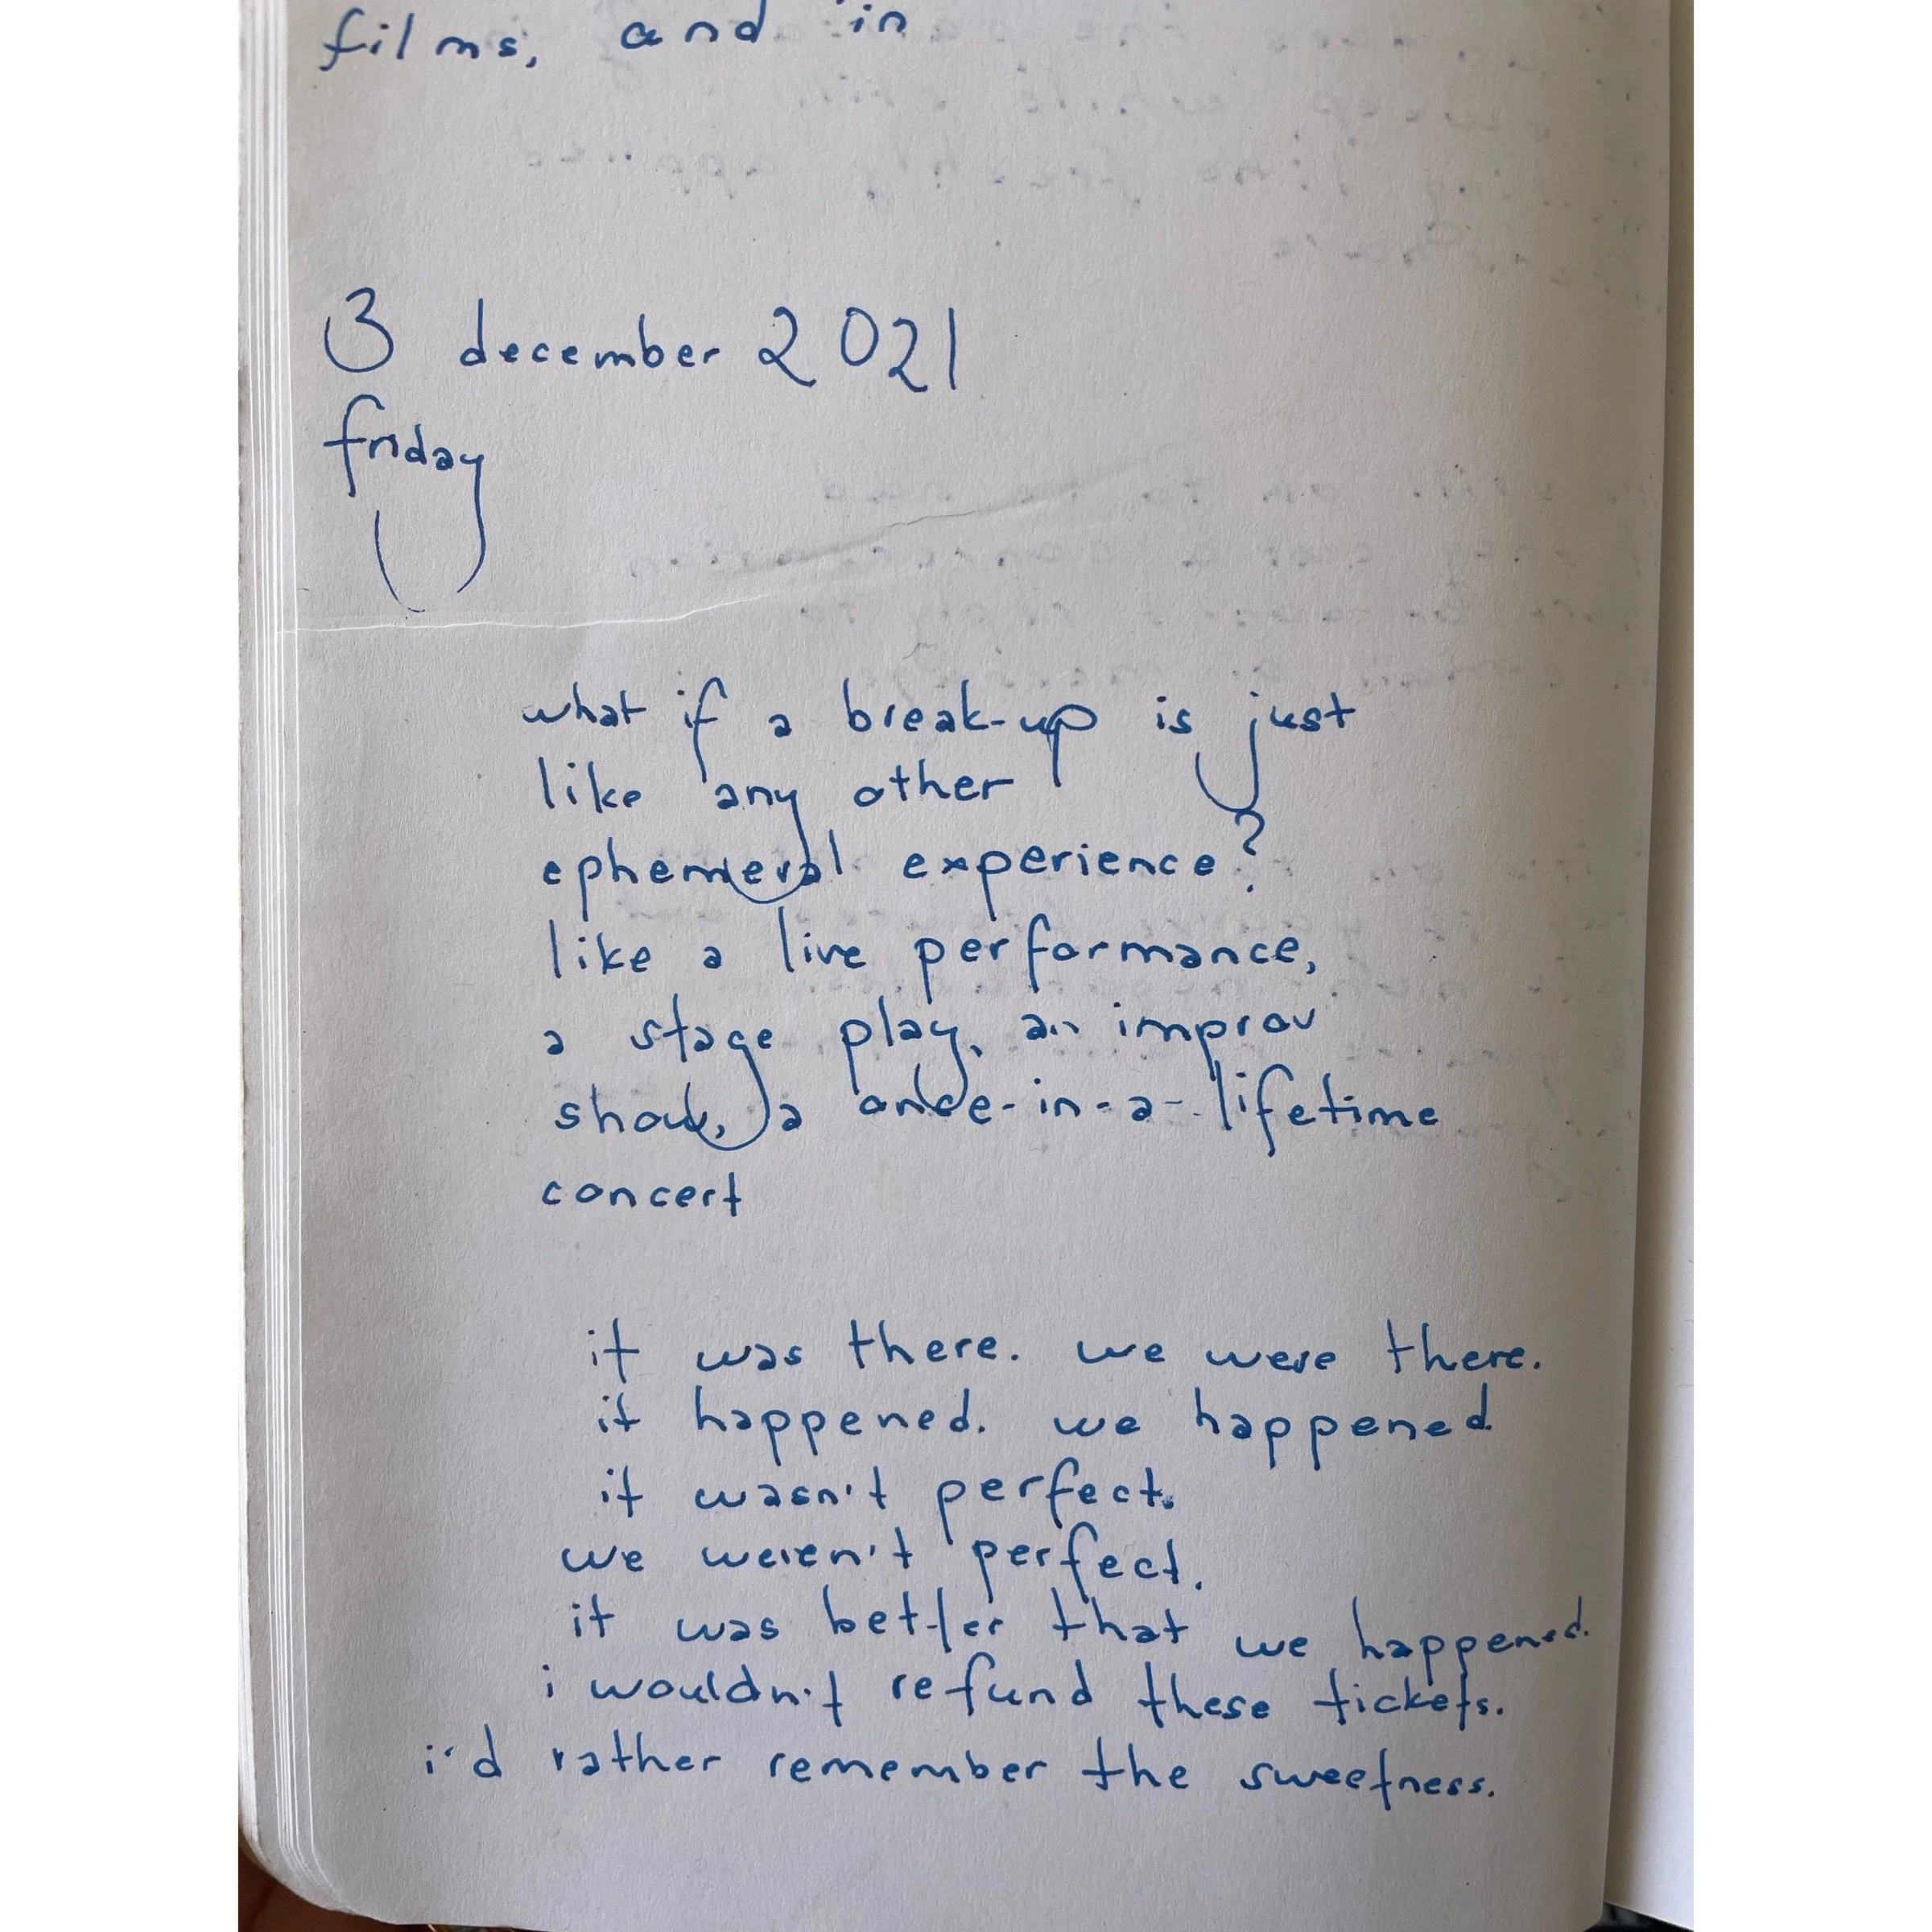 films, and in
3 december 2021
friday
what if a break-up is just
like any other
ephemeral experience?
like a live performance,
a stage play, an improv
show, a once-in-a-lifetime
concert
it was there. we were there.
it happened. we happened.
it wasn't perfect.
we weren't perfect.
it was better that we happened.
i wouldn't refund these tickets.
i'd rather remember the sweetness.